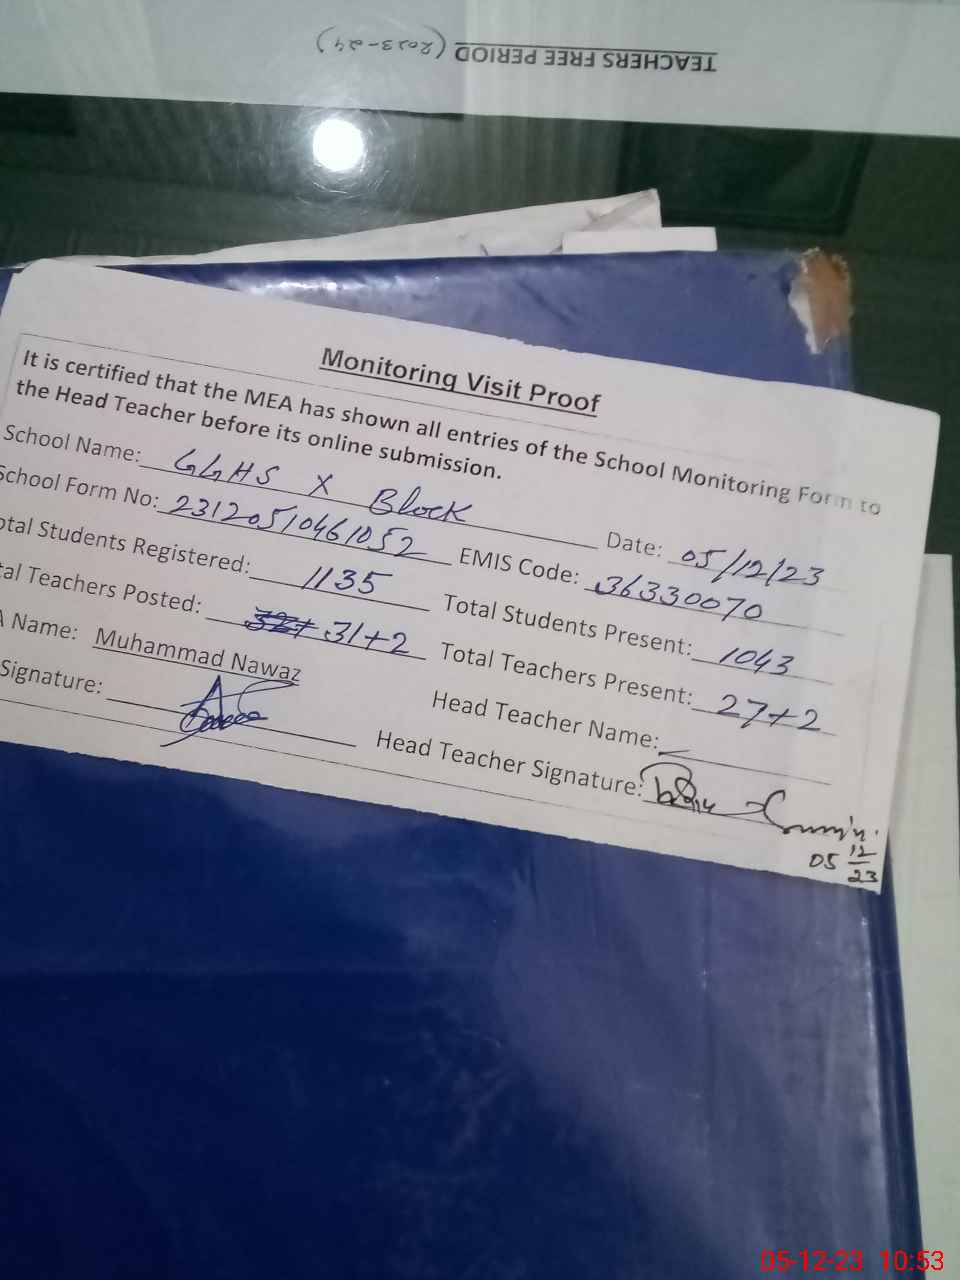 TEACHERS FREE PERIOD (2023-24)
Monitoring Visit Proof
It is certified that the MEA has shown all entries of the School Monitoring Form to
the Head Teacher before its online submission.
School Name: GGHS X Block
Date: 05/12/23
School Form No: 23120510461052
EMIS Code: 36330070
otal Students Registered: 1135
Total Students Present: 1043
tal Teachers Posted: 31+2
Total Teachers Present: 27+2
A Name: Muhammad Nawaz
Head Teacher Name:
Signature:
Head Teacher Signature:
05 12
23
05-12-23 10:53